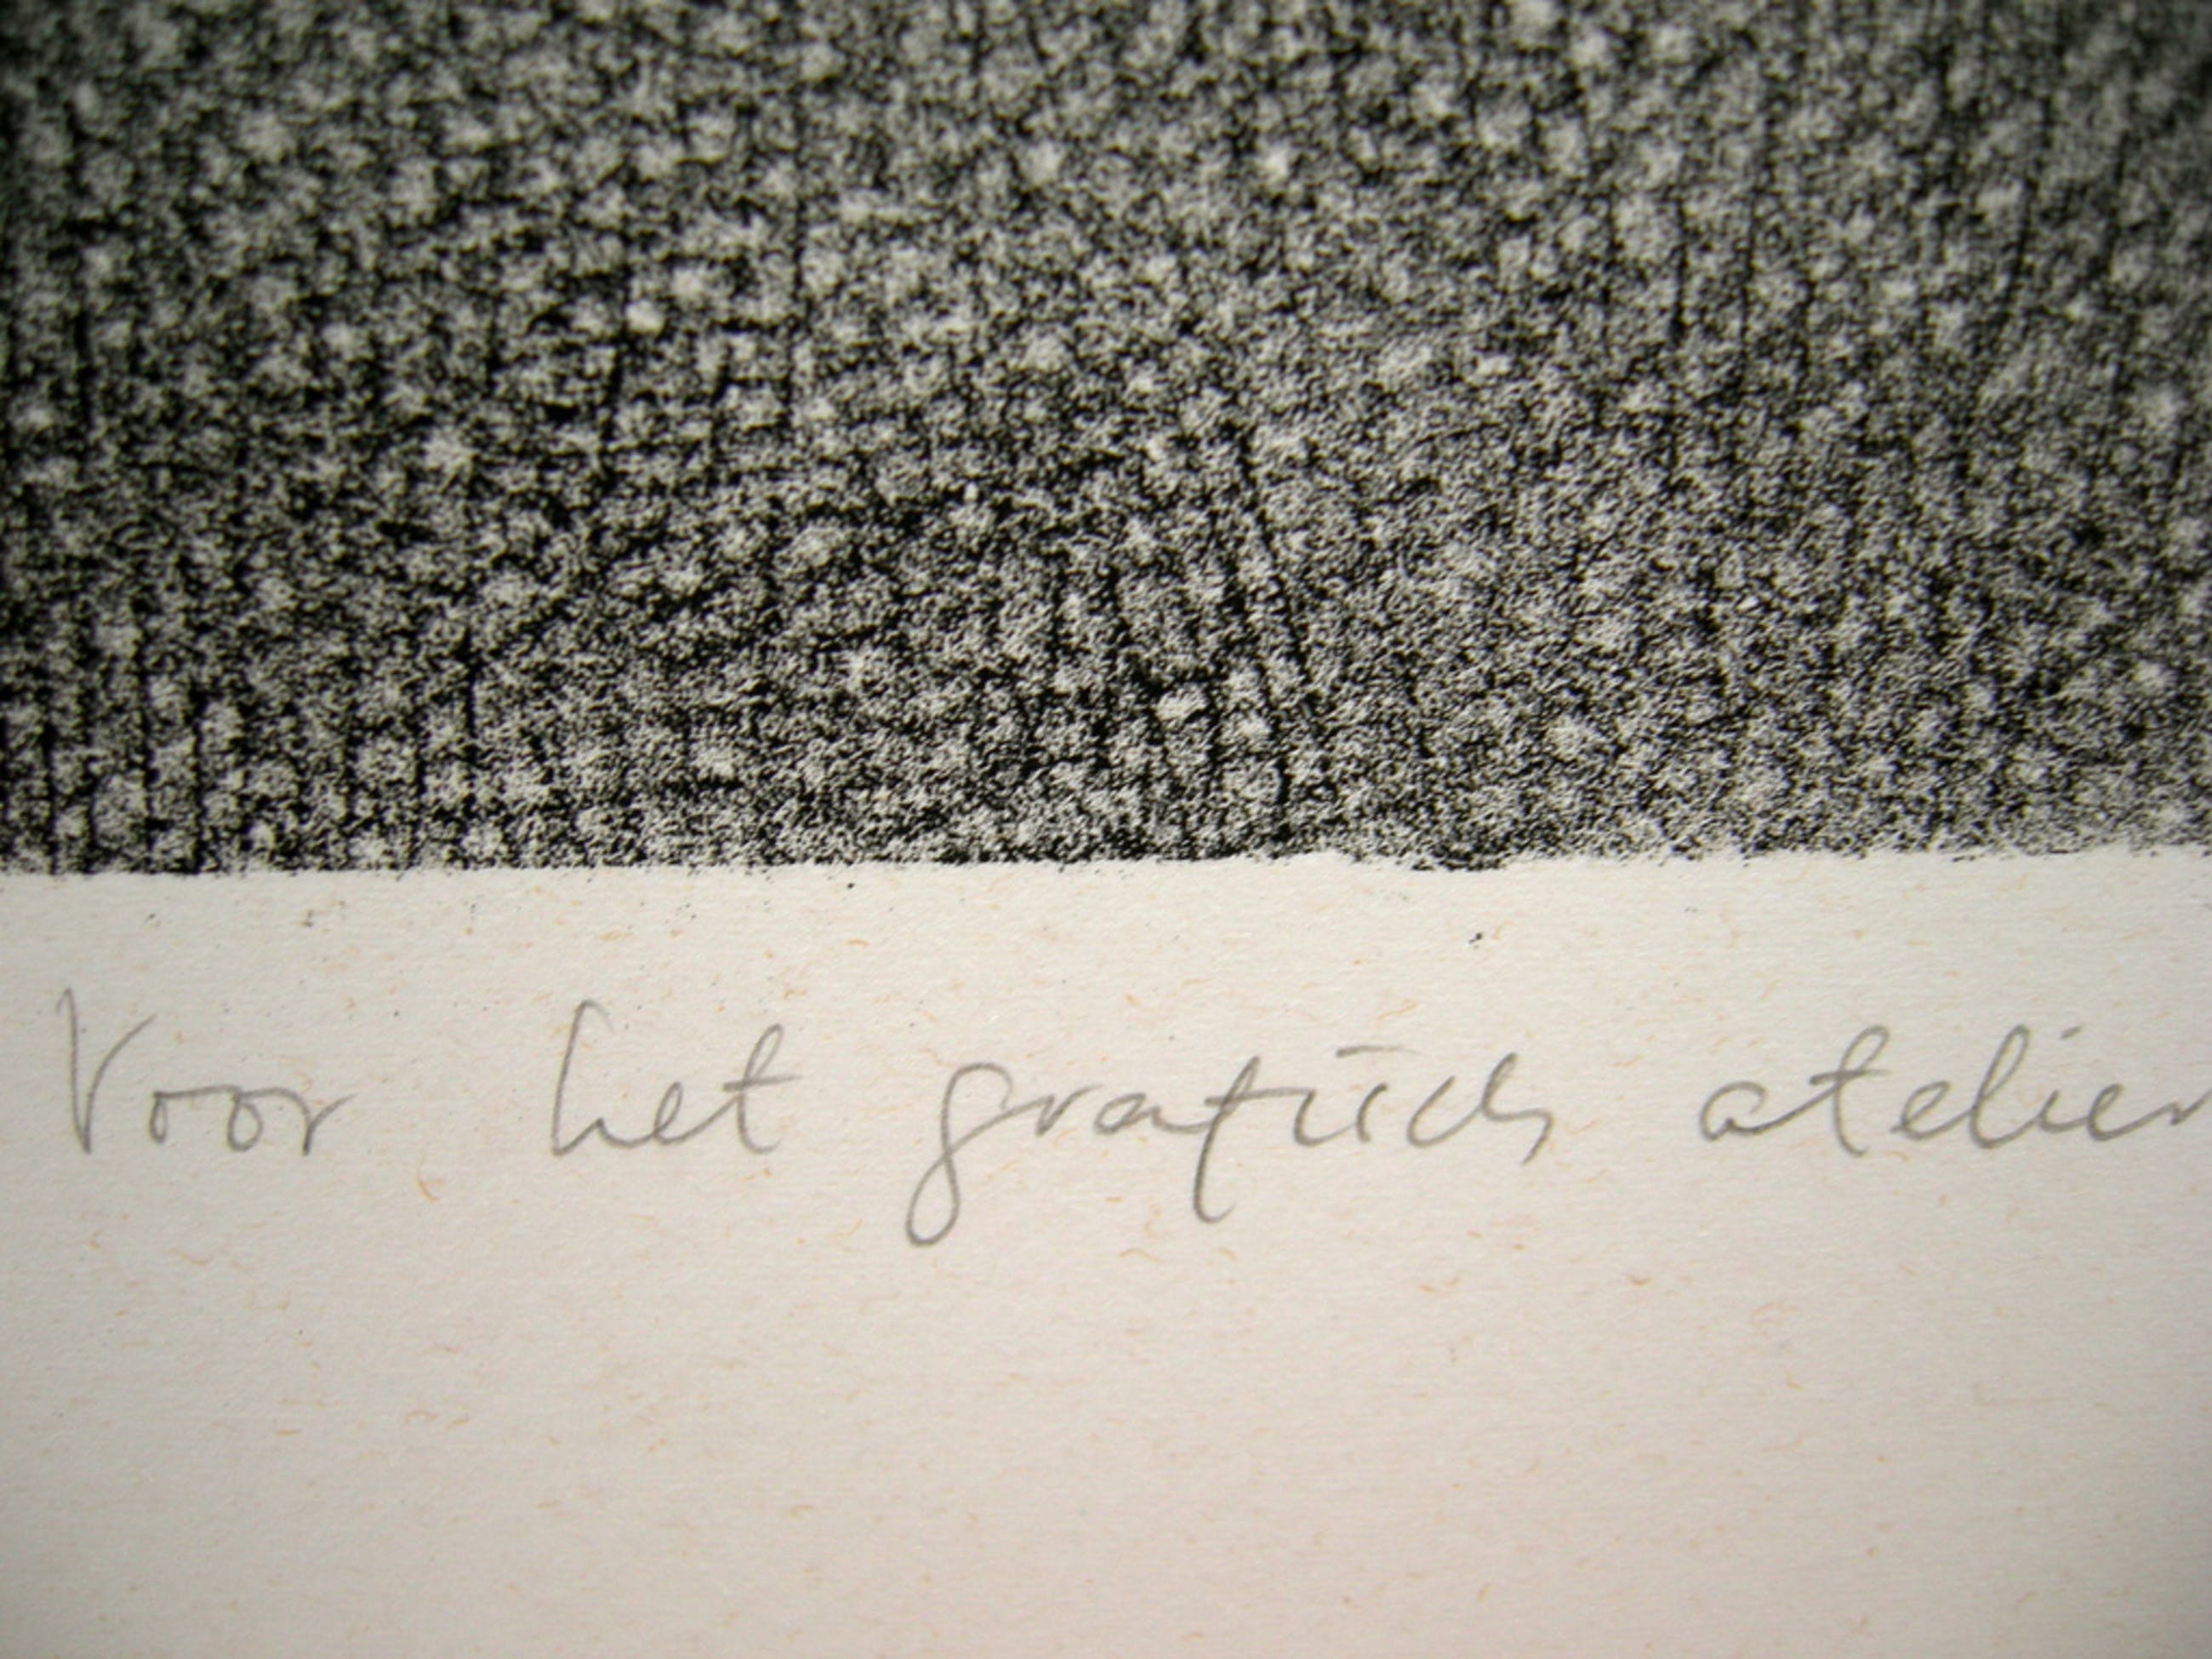 Voor het grafisch atelier